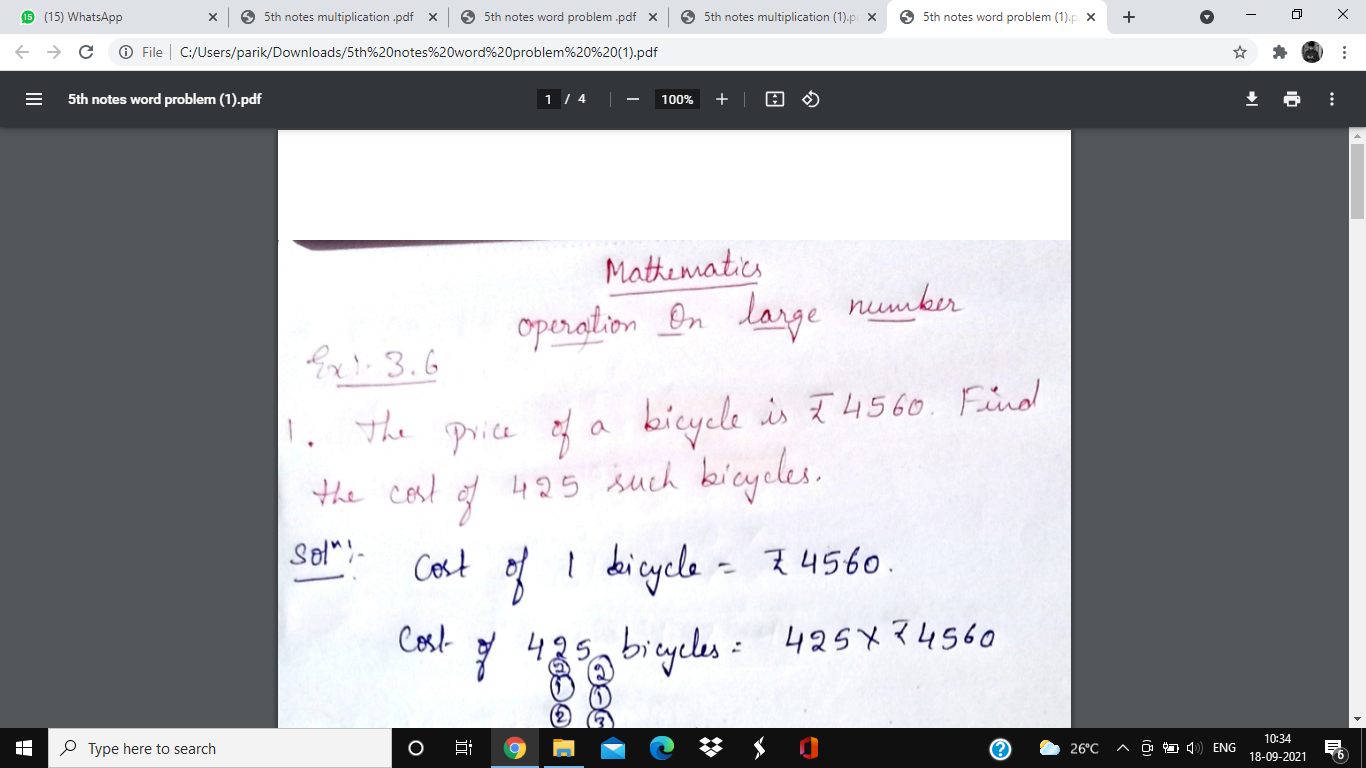 (15) WhatsApp
5th notes multiplication .pdf
5th notes word problem .pdf
5th notes multiplication (1).p
5th notes word problem (1).p
File | C:/Users/parik/Downloads/5th%20notes%20word%20problem%20%20(1).pdf
5th notes word problem (1).pdf
1 / 4
100%
Mathematics
operation On large number
Ex:- 3.6
1. The price of a bicycle is ₹ 4560. Find
the cost of 425 such bicycles.
Solⁿ:- Cost of 1 bicycle = ₹ 4560.
Cost of 425 bicycles = 425 X ₹ 4560
2 2
1 1
2 3
Type here to search
26°C
ENG
10:34
18-09-2021
6
15